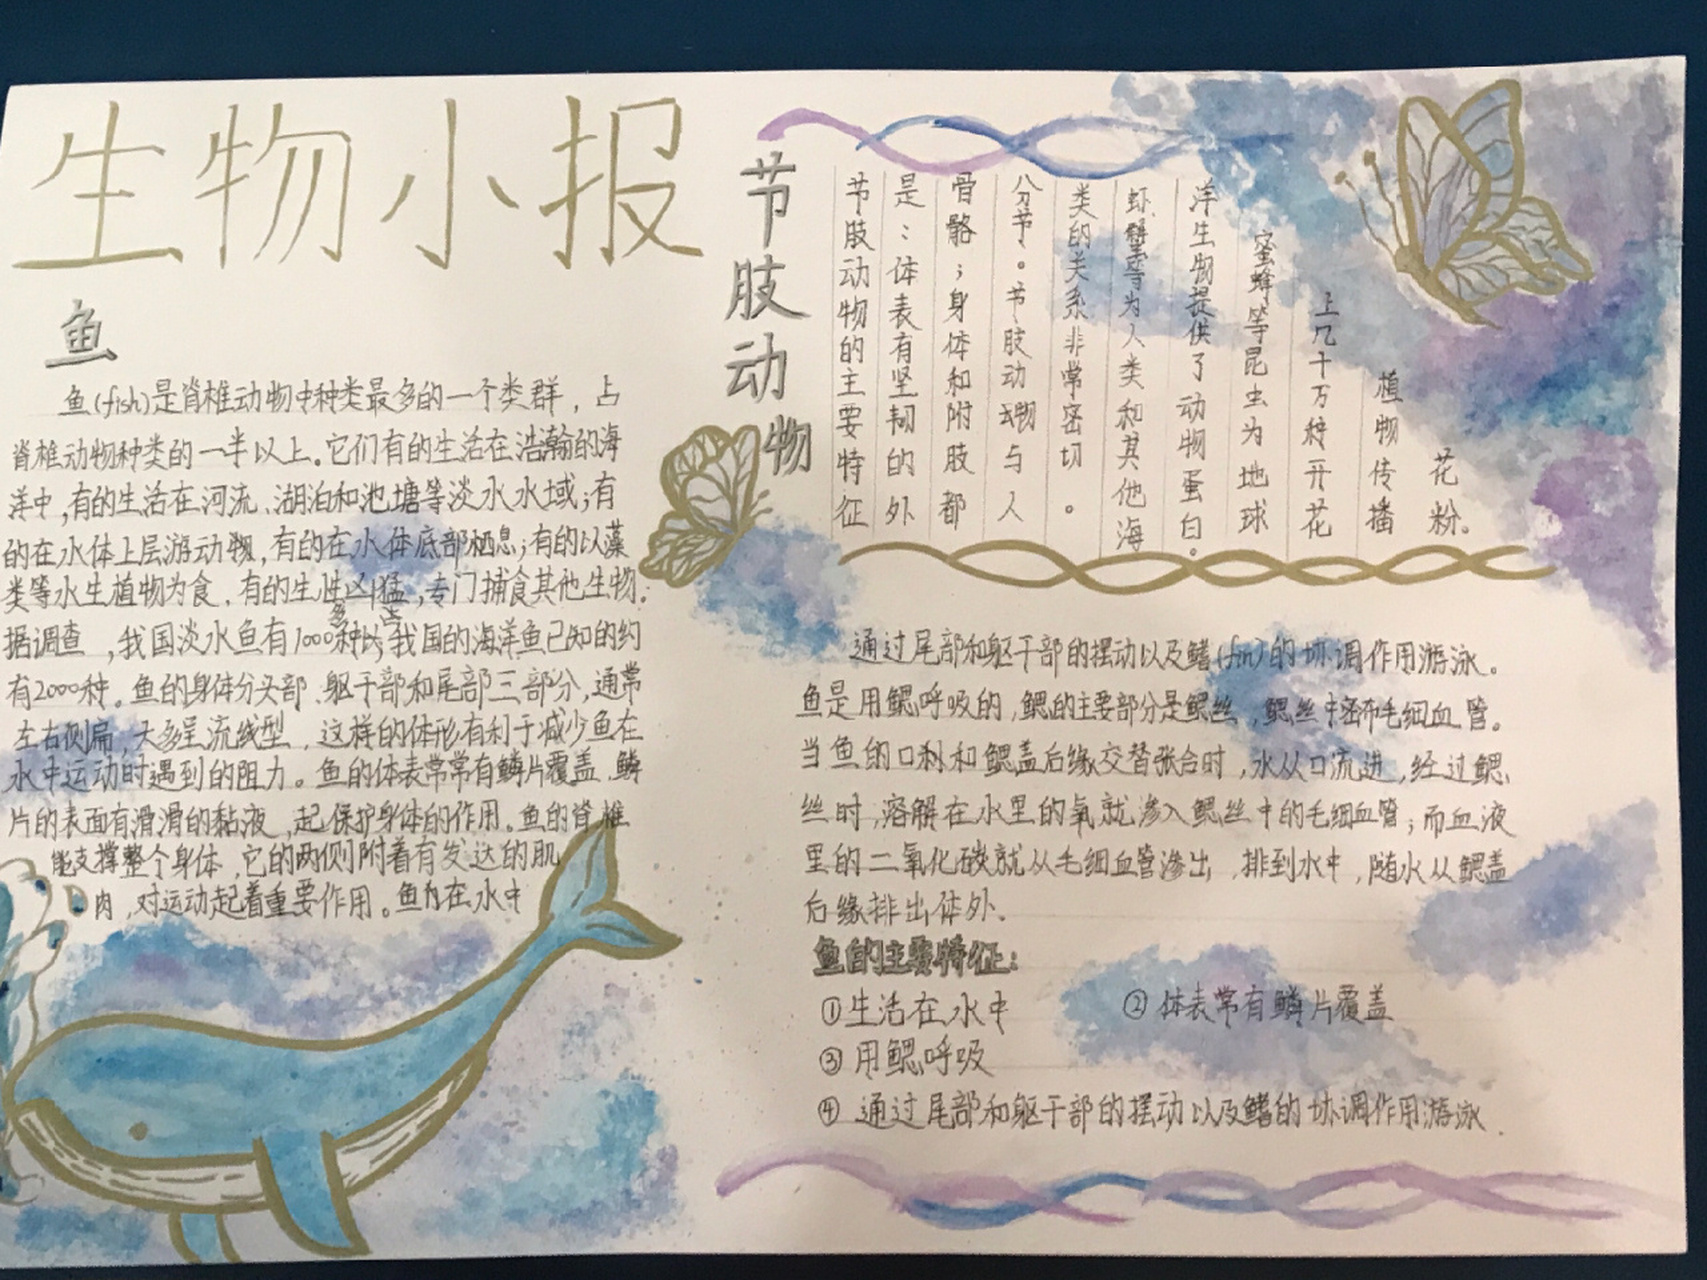 生物小报
鱼
鱼(fish)是脊椎动物中种类最多的一个类群，占
脊椎动物种类的一半以上。它们有的生活在浩瀚的海
洋中，有的生活在河流、湖泊和池塘等淡水水域；有
的在水体上层游动，有的在水体底部栖息；有的以藻
类等水生植物为食，有的生性凶猛，专门捕食其他生物。
据调查，我国淡水鱼有1000种
我国的海洋鱼已知的约
有2000种。鱼的身体分头部、躯干部和尾部三部分，通常
左右侧扁，大多呈流线型，这样的体形有利于减少鱼在
水中运动时遇到的阻力。鱼的体表常常有鳞片覆盖，鳞
片的表面有滑滑的黏液，起保护身体的作用。鱼的脊椎
能支撑整个身体，它的两侧附着有发达的肌
肉，对运动起着重要作用。鱼在水中
节肢动物
节肢动物的主要特征
是：体表有坚韧的外
骨骼；身体和附肢都
分节。节肢动物与人
类的关系非常密切。
虾、蟹等为人类和其他海
洋生物提供了动物蛋白。
蜜蜂等昆虫为地球
上几十万种开花
植物传播
花粉。
通过尾部和躯干部的摆动以及鳍(fin)的协调作用游泳。
鱼是用鳃呼吸的，鳃的主要部分是鳃丝，鳃丝中密布毛细血管。
当鱼的口和鳃盖后缘交替张合时，水从口流进，经过鳃
丝时，溶解在水里的氧就渗入鳃丝中的毛细血管；而血液
里的二氧化碳就从毛细血管渗出，排到水中，随水从鳃盖
后缘排出体外。
鱼的主要特征：
①生活在水中 ②体表常有鳞片覆盖
③用鳃呼吸
④通过尾部和躯干部的摆动以及鳍的协调作用游泳.